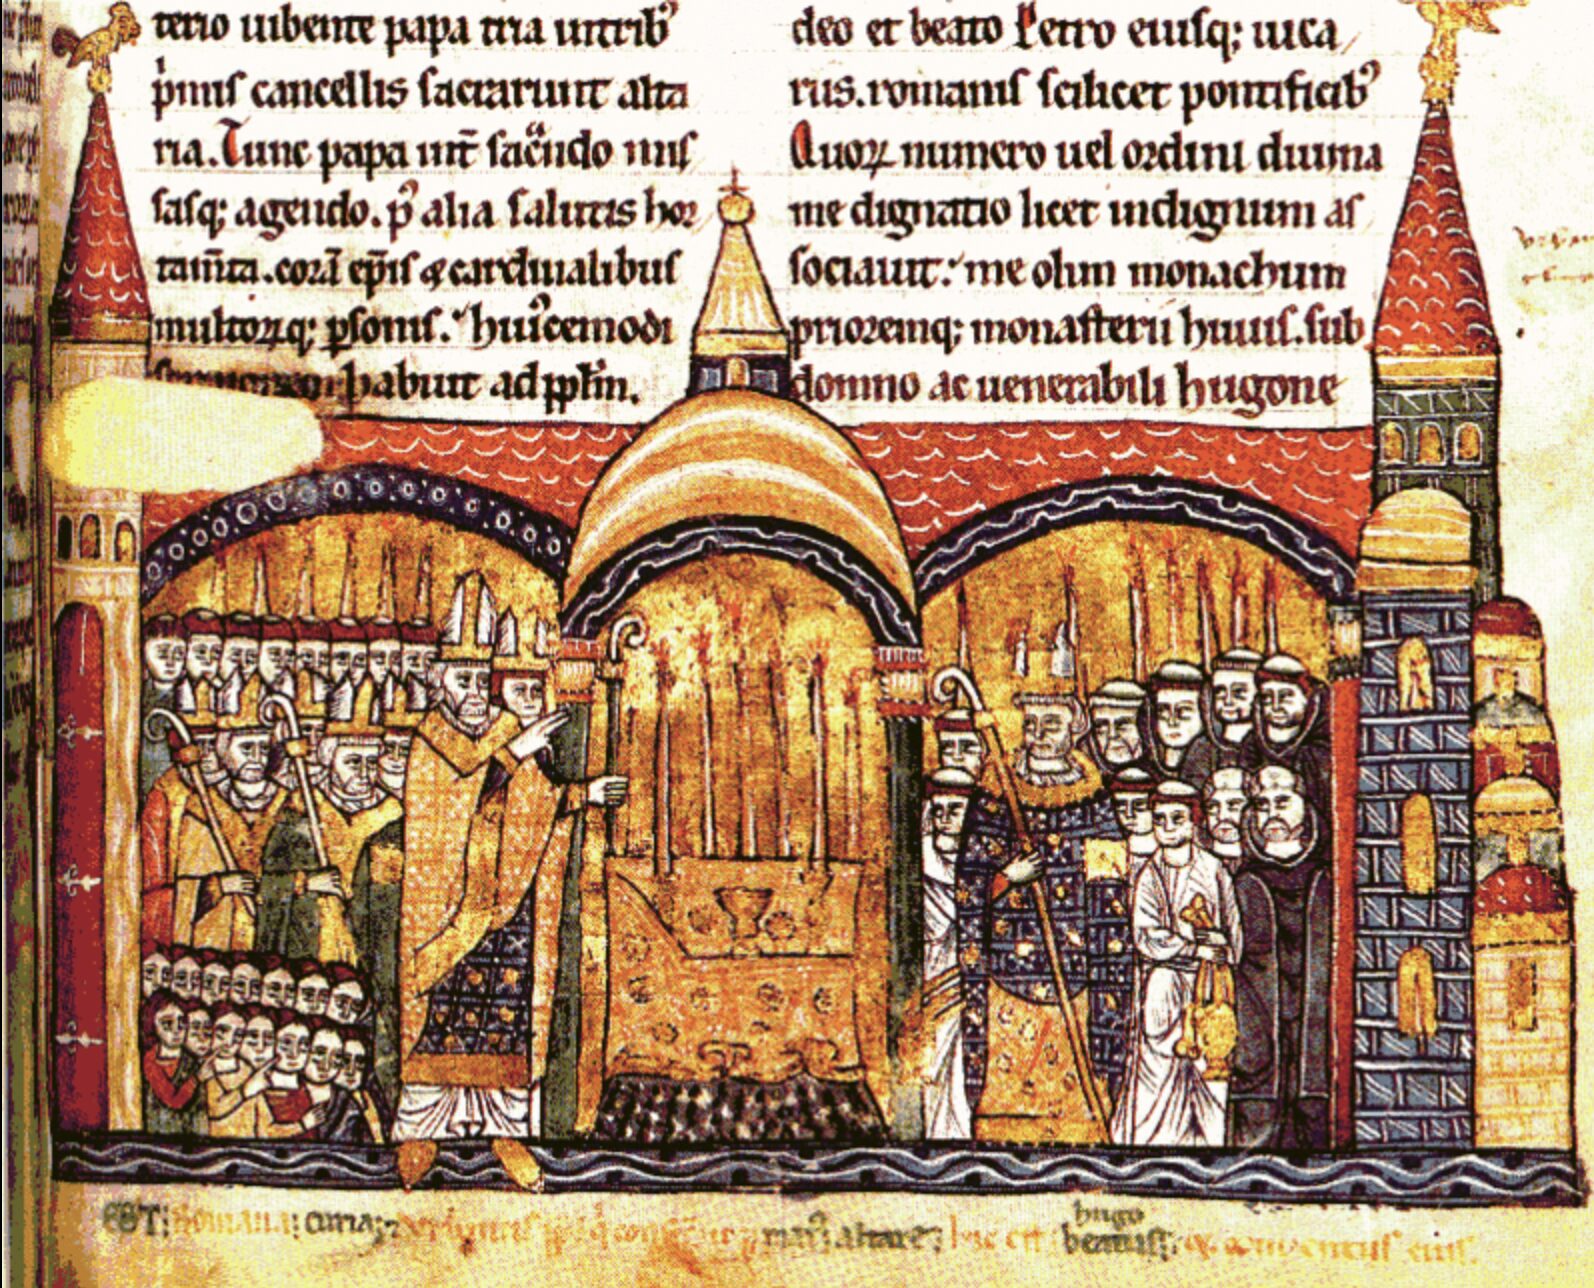 terio uibente papa tria in trib'
p'mis cancellis sacrarunt alta
ria. Tunc papa int' sac'ndo mis
sasq; agendo. p' alia salutis hor
tam̄ta. corā ep̄is & cardinalibus
multorꝝq; ꝑsonis. huiꝰcemodi
habuit ad pp̄lm.
deo et beato Petro eiusq; uica
riis. romanis scilicet pontificib'
Quoꝝ numero uel ordini diuina
me dignatio licet indignum as
sociauit: me olim monachum
prioremq; monasterii huius. sub
domno ac uenerabili hugone
EST; Romana; curia; altare; hic est hugo beatiss; conuentus eius.